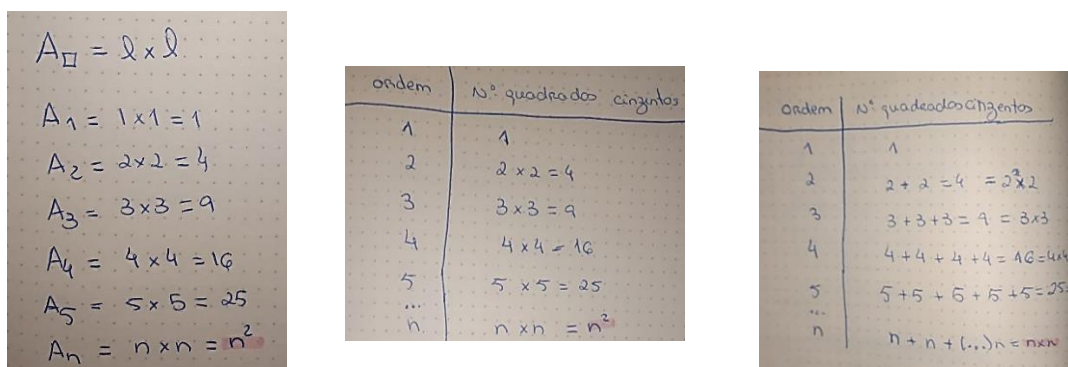 A□ = l x l
A1 = 1x1 = 1
A2 = 2x2 = 4
A3 = 3x3 = 9
A4 = 4x4 = 16
A5 = 5x5 = 25
An = n x n = n²
ordem Nº quadrados cinzentos
1 1
2 2x2=4
3 3x3=9
4 4x4=16
5 5x5=25
...
n n x n = n²
ordem Nº quadrados cinzentos
1 1
2 2+2=4 = 2x2
3 3+3+3=9 = 3x3
4 4+4+4+4=16=4x4
5 5+5+5+5+5=25=
...
n n+n+(...)n = nxn